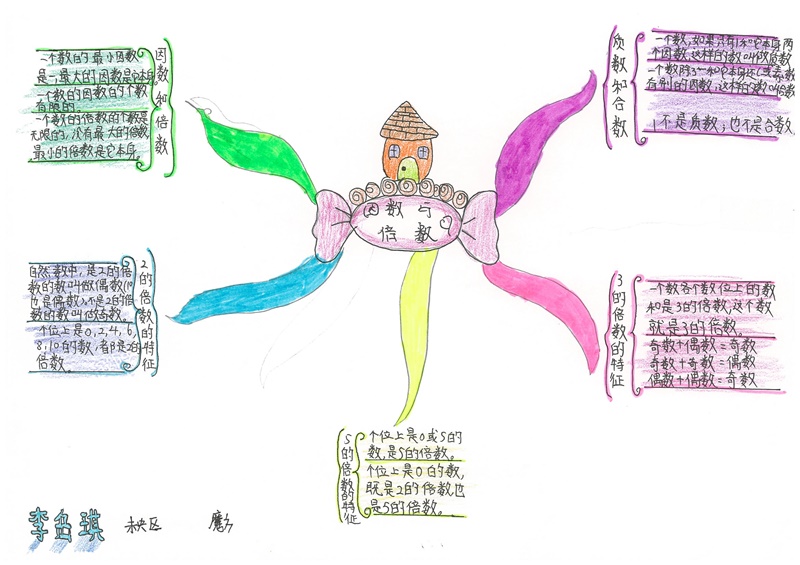 因数与
倍数
因数和倍数
一个数的最小因数
是1,最大的因数是它本身
一个数的因数的个数
有限的。
一个数的倍数的个数是
无限的,没有最大的倍数
最小的倍数是它本身。
质数和合数
一个数,如果只有1和它本身两
个因数,这样的数叫做质数
一个数除了一和它本身还
有别的因数,这样的数叫倍数
1不是质数,也不是合数
2的倍数的特征
自然数中,是2的倍
数的数叫做偶数(0
也是偶数),不是2的倍
数的数叫做奇数。
个位上是0,2,4,6,
8,10的数,都是2的
倍数。
3的倍数的特征
一个数各个数位上的数
和是3的倍数,这个数
就是3的倍数。
奇数+偶数=奇数
奇数+奇数=偶数
偶数+偶数=奇数
5的倍数的特征
个位上是0或5的
数,是5的倍数。
个位上是0的数,
既是2的倍数也
是5的倍数。
李 琪
未央区